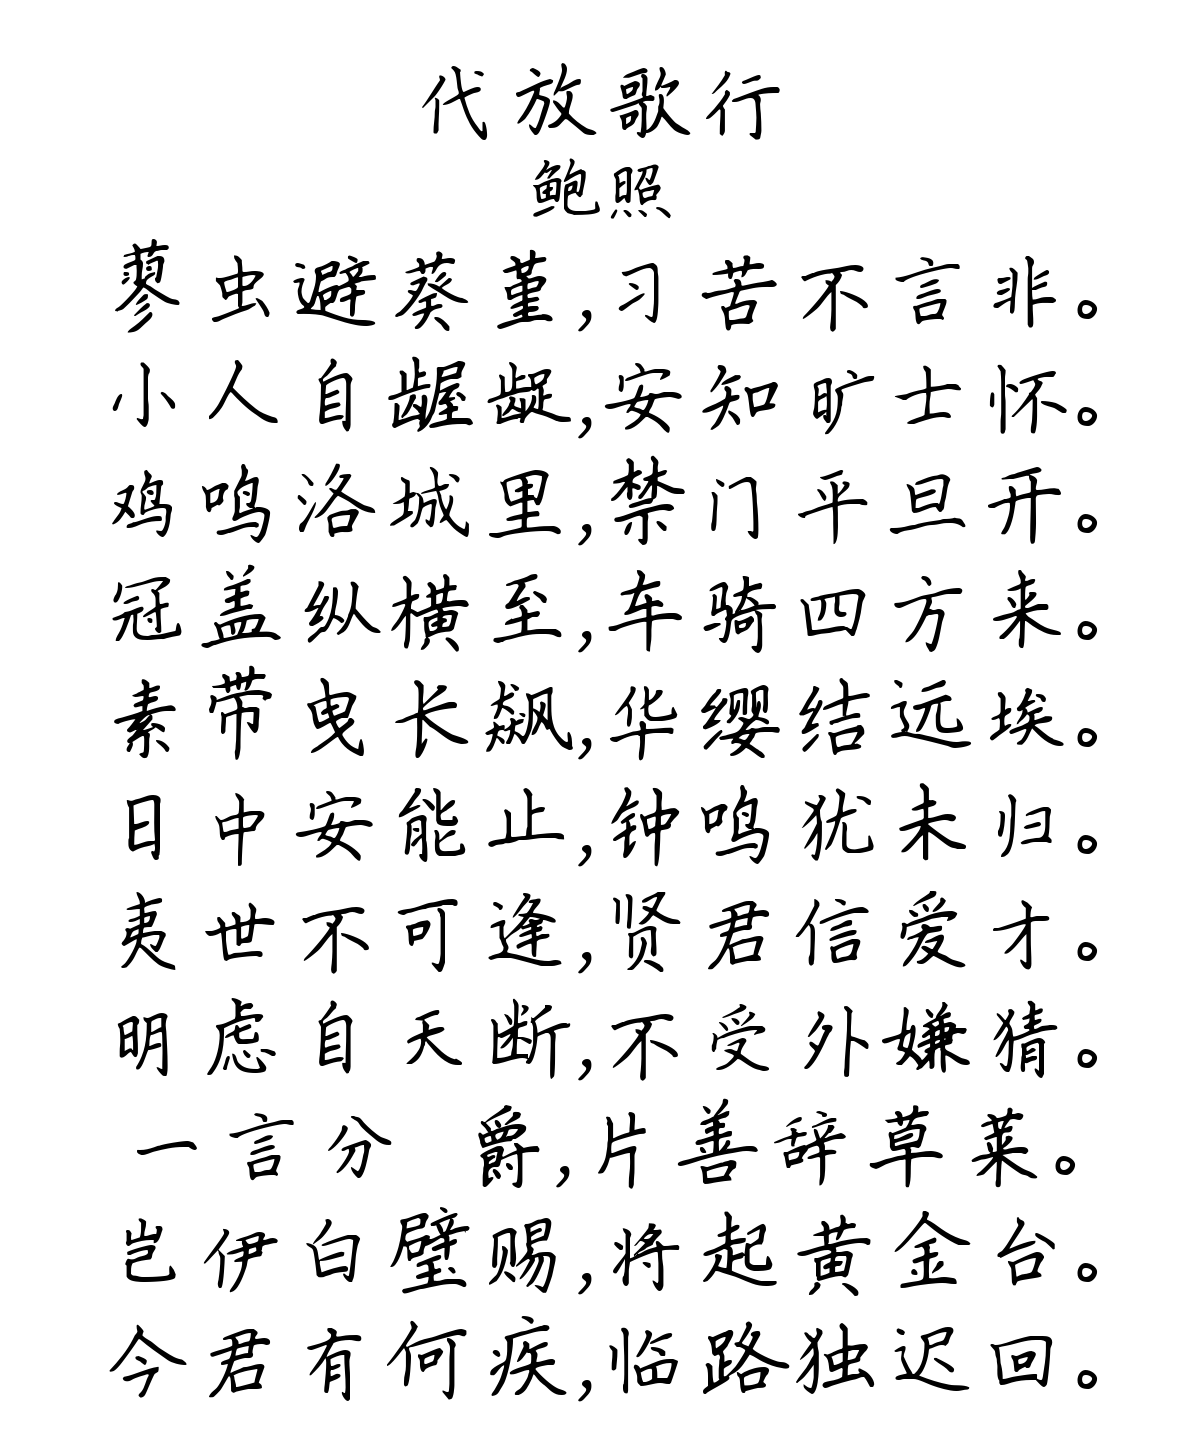 代放歌行
鲍照
蓼虫避葵堇,习苦不言非。
小人自龌龊,安知旷士怀。
鸡鸣洛城里,禁门平旦开。
冠盖纵横至,车骑四方来。
素带曳长飙,华缨结远埃。
日中安能止,钟鸣犹未归。
夷世不可逢,贤君信爱才。
明虑自天断,不受外嫌猜。
一言分 爵,片善辞草莱。
岂伊白璧赐,将起黄金台。
今君有何疾,临路独迟回。